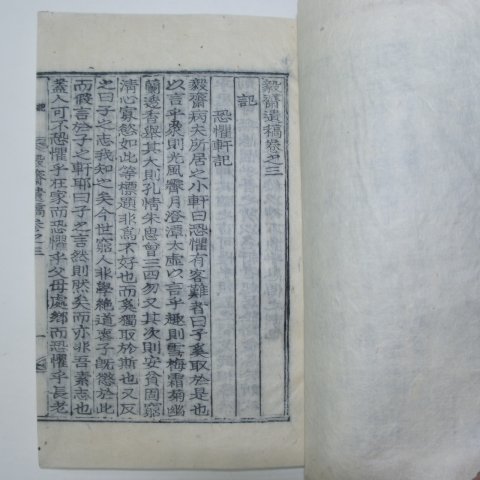 毅齋遺稿卷之三
記
恐懼軒記
毅齋病夫所居之小軒曰恐懼有客難者曰子奚取於是也
以言乎景則光風霽月澄潭太虛以言乎趣則雪梅霜菊幽
蘭逸香擧其大則孔情朱思曾三四勿又其次則安貧固窮
淸心寡慾如此等標題非爲不好也而奚獨取於斯也又反
之曰子之志我知之矣今世窮人非學絶道喪子旣慾於此
而假言於子之軒耶曰子之言然則然矣而亦非吾素志也
蓋人可不恐懼乎在家而恐懼乎父母處鄕而恐懼乎長老
毅齋遺稿卷之三
一